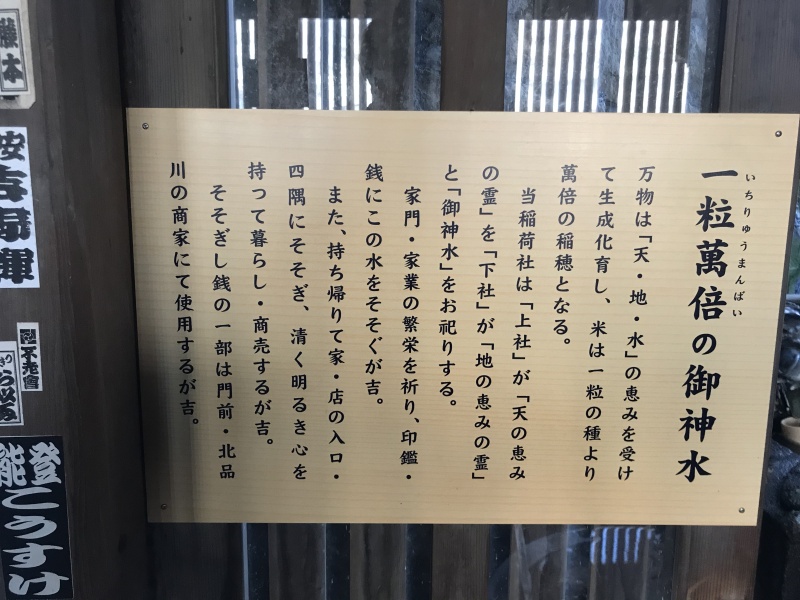 いちりゅうまんばい
一粒萬倍の御神水
万物は「天・地・水」の恵みを受け
て生成化育し、米は一粒の種より
萬倍の稲穂となる。
当稲荷社は「上社」が「天の恵み
の霊」を「下社」が「地の恵みの霊」
と「御神水」をお祀りする。
家門・家業の繁栄を祈り、印鑑・
銭にこの水をそそぐが吉。
また、持ち帰りて家・店の入口・
四隅にそそぎ、清く明るき心を
持つて暮らし・商売するが吉。
そそぎし銭の一部は門前・北品
川の商家にて使用するが吉。
能登
こうすけ